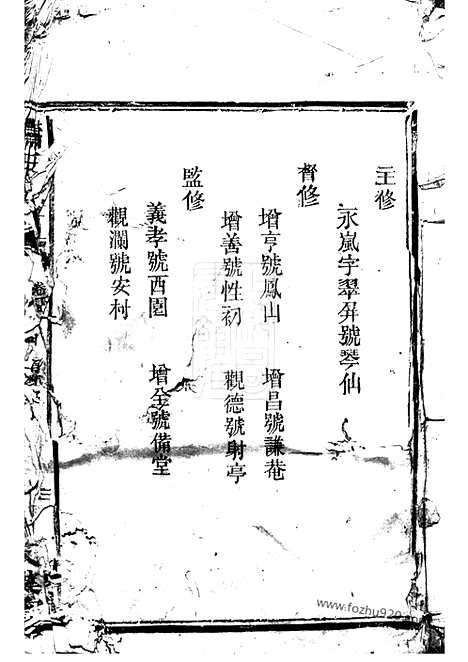 主修
永嵐字翠屏號琴仙
督修
增亨號鳳山 增昌號謙菴
增善號性初 觀德號射亭
監修
義孝號西園 增全號備堂
觀瀾號安村
三
www.fozhu920.com